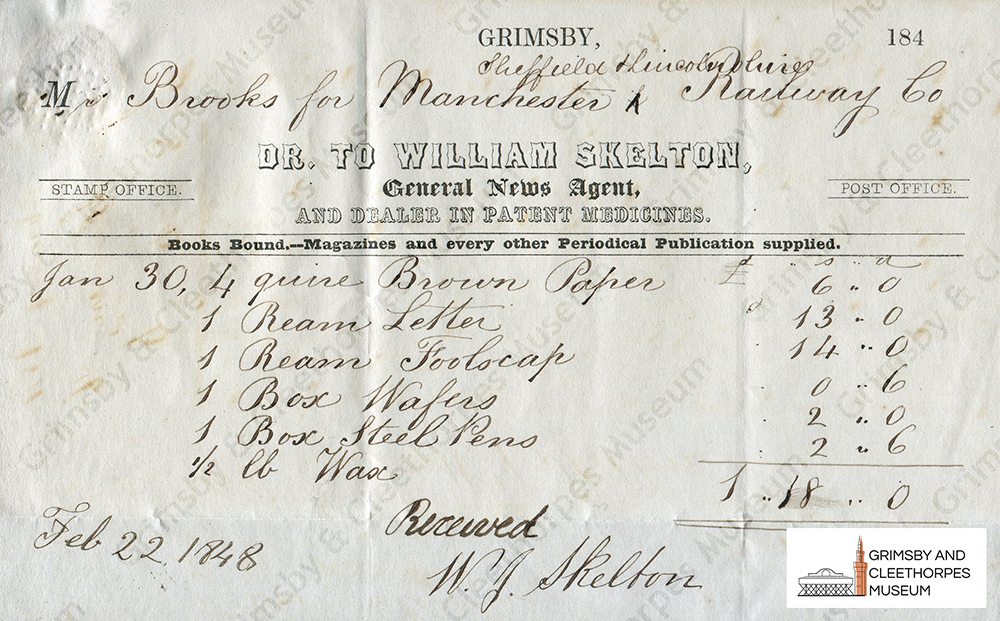 GRIMSBY, 184
Sheffield & Lincolnshire
Mr Brooks for Manchester & Railway Co
DR. TO WILLIAM SKELTON,
STAMP OFFICE. General News Agent, POST OFFICE.
AND DEALER IN PATENT MEDICINES.
Books Bound.—Magazines and every other Periodical Publication supplied.
£ s d
Jan 30, 4 quire Brown Paper 6 .. 0
1 Ream Letter 13 .. 0
1 Ream Foolscap 14 .. 0
1 Box Wafers 0 .. 6
1 Box Steel Pens 2 .. 0
1/2 lb Wax 2 .. 6
1 .. 18 .. 0
Feb 22 1848 Received
W. J. Skelton
GRIMSBY AND
CLEETHORPES
MUSEUM
Grimsby & Cleethorpes Museum